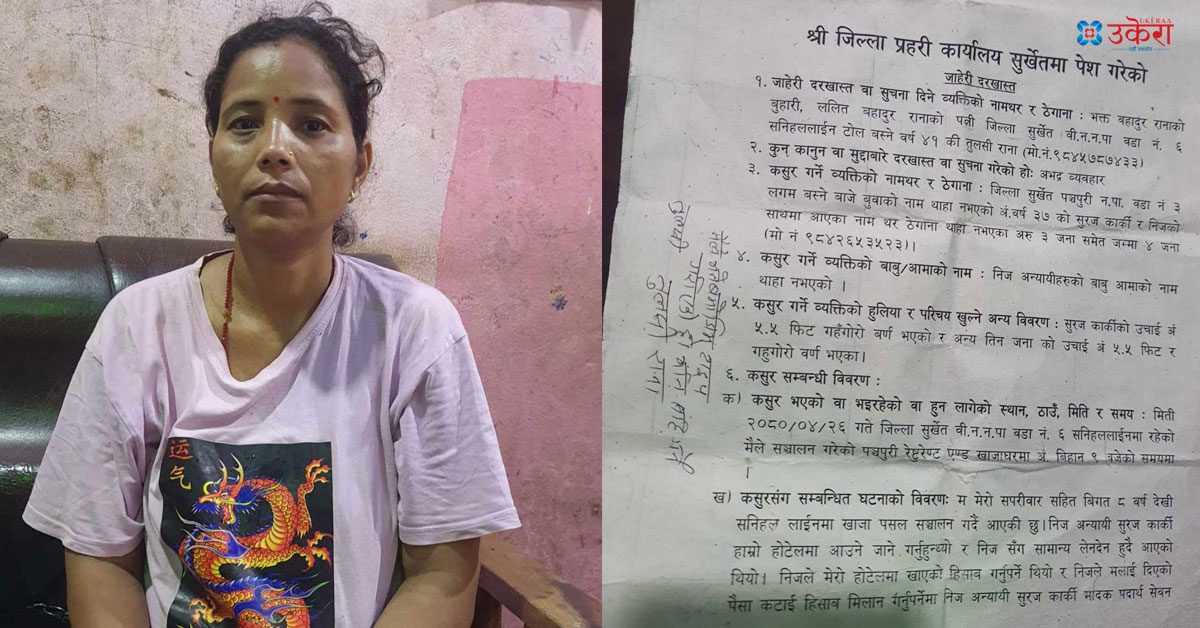 UKERAA
उकेरा
运
气
श्री जिल्ला प्रहरी कार्यालय सुर्खेतमा पेश गरेको
जाहेरी दरखास्त
१. जाहेरी दरखास्त वा सुचना दिने व्यक्तिको नामथर र ठेगाना : भक्त बहादुर रानाको
बुहारी, ललित बहादुर रानाको पत्नी जिल्ला सुर्खेत वी.न.न.पा वडा नं. ६
सनिहललाईन टोल बस्ने वर्ष ४१ की तुलसी राना (मो.नं.९८४५७८७४३३)
२. कुन कानुन वा मुद्दाबारे दरखास्त वा सुचना गरेको हो: अभद्र व्यवहार
३. कसुर गर्ने व्यक्तिको नामथर र ठेगाना : जिल्ला सुर्खेत पञ्चपुरी न.पा. वडा नं ३
लगम बस्ने बाजे बुवाको नाम थाहा नभएको अं.वर्ष ३७ को सुरज कार्की र निजको
साथमा आएका नाम थर ठेगाना थाहा नभएका अरु ३ जना समेत जम्मा ४ जना
(मो नं ९८४२६५३५२३)।
४. कसुर गर्ने व्यक्तिको बाबु/आमाको नाम : निज अन्यायीहरुको बाबु आमाको नाम
थाहा नभएको ।
५. कसुर गर्ने व्यक्तिको हुलिया र परिचय खुल्ने अन्य विवरण : सुरज कार्कीको उचाई अं
५.५ फिट गहुँगोरो बर्ण भएको र अन्य तिन जना को उचाई अं ५.५ फिट र
गहुगोरो वर्ण भएका।
६. कसुर सम्बन्धी विवरण :
क) कसुर भएको वा भइरहेको वा हुन लागेको स्थान, ठाउँ, मिति र समय : मिती
२०८०/०४/२६ गते जिल्ला सुर्खेत वी.न.न.पा वडा नं. ६ सनिहललाईनमा रहेको
मैले सञ्चालन गरेको पञ्चपुरी रेष्टुरेण्ट एण्ड खाजाघरमा अं. विहान ९ वजेको समयमा
।
ख) कसुरसंग सम्बन्धित घटनाको विवरण: म मेरो सपरीवार सहित बिगत ८ वर्ष देखी
सनिहल लाईनमा खाजा पसल सञ्चालन गर्दै आएकी छु।निज अन्यायी सुरज कार्की
हाम्रो होटेलमा आउने जाने गर्नुहुन्थ्यो र निज सँग सामान्य लेनदेन हुदै आएको
थियो। निजले मेरो होटेलमा खाएको हिसाव गर्नुपर्ने थियो र निजले मलाई दिएको
पैसा कटाई हिसाव मिलान गर्नुपर्नेमा निज अन्यायी सुरज कार्की मादक पदार्थ सेवन
तुलसी राना